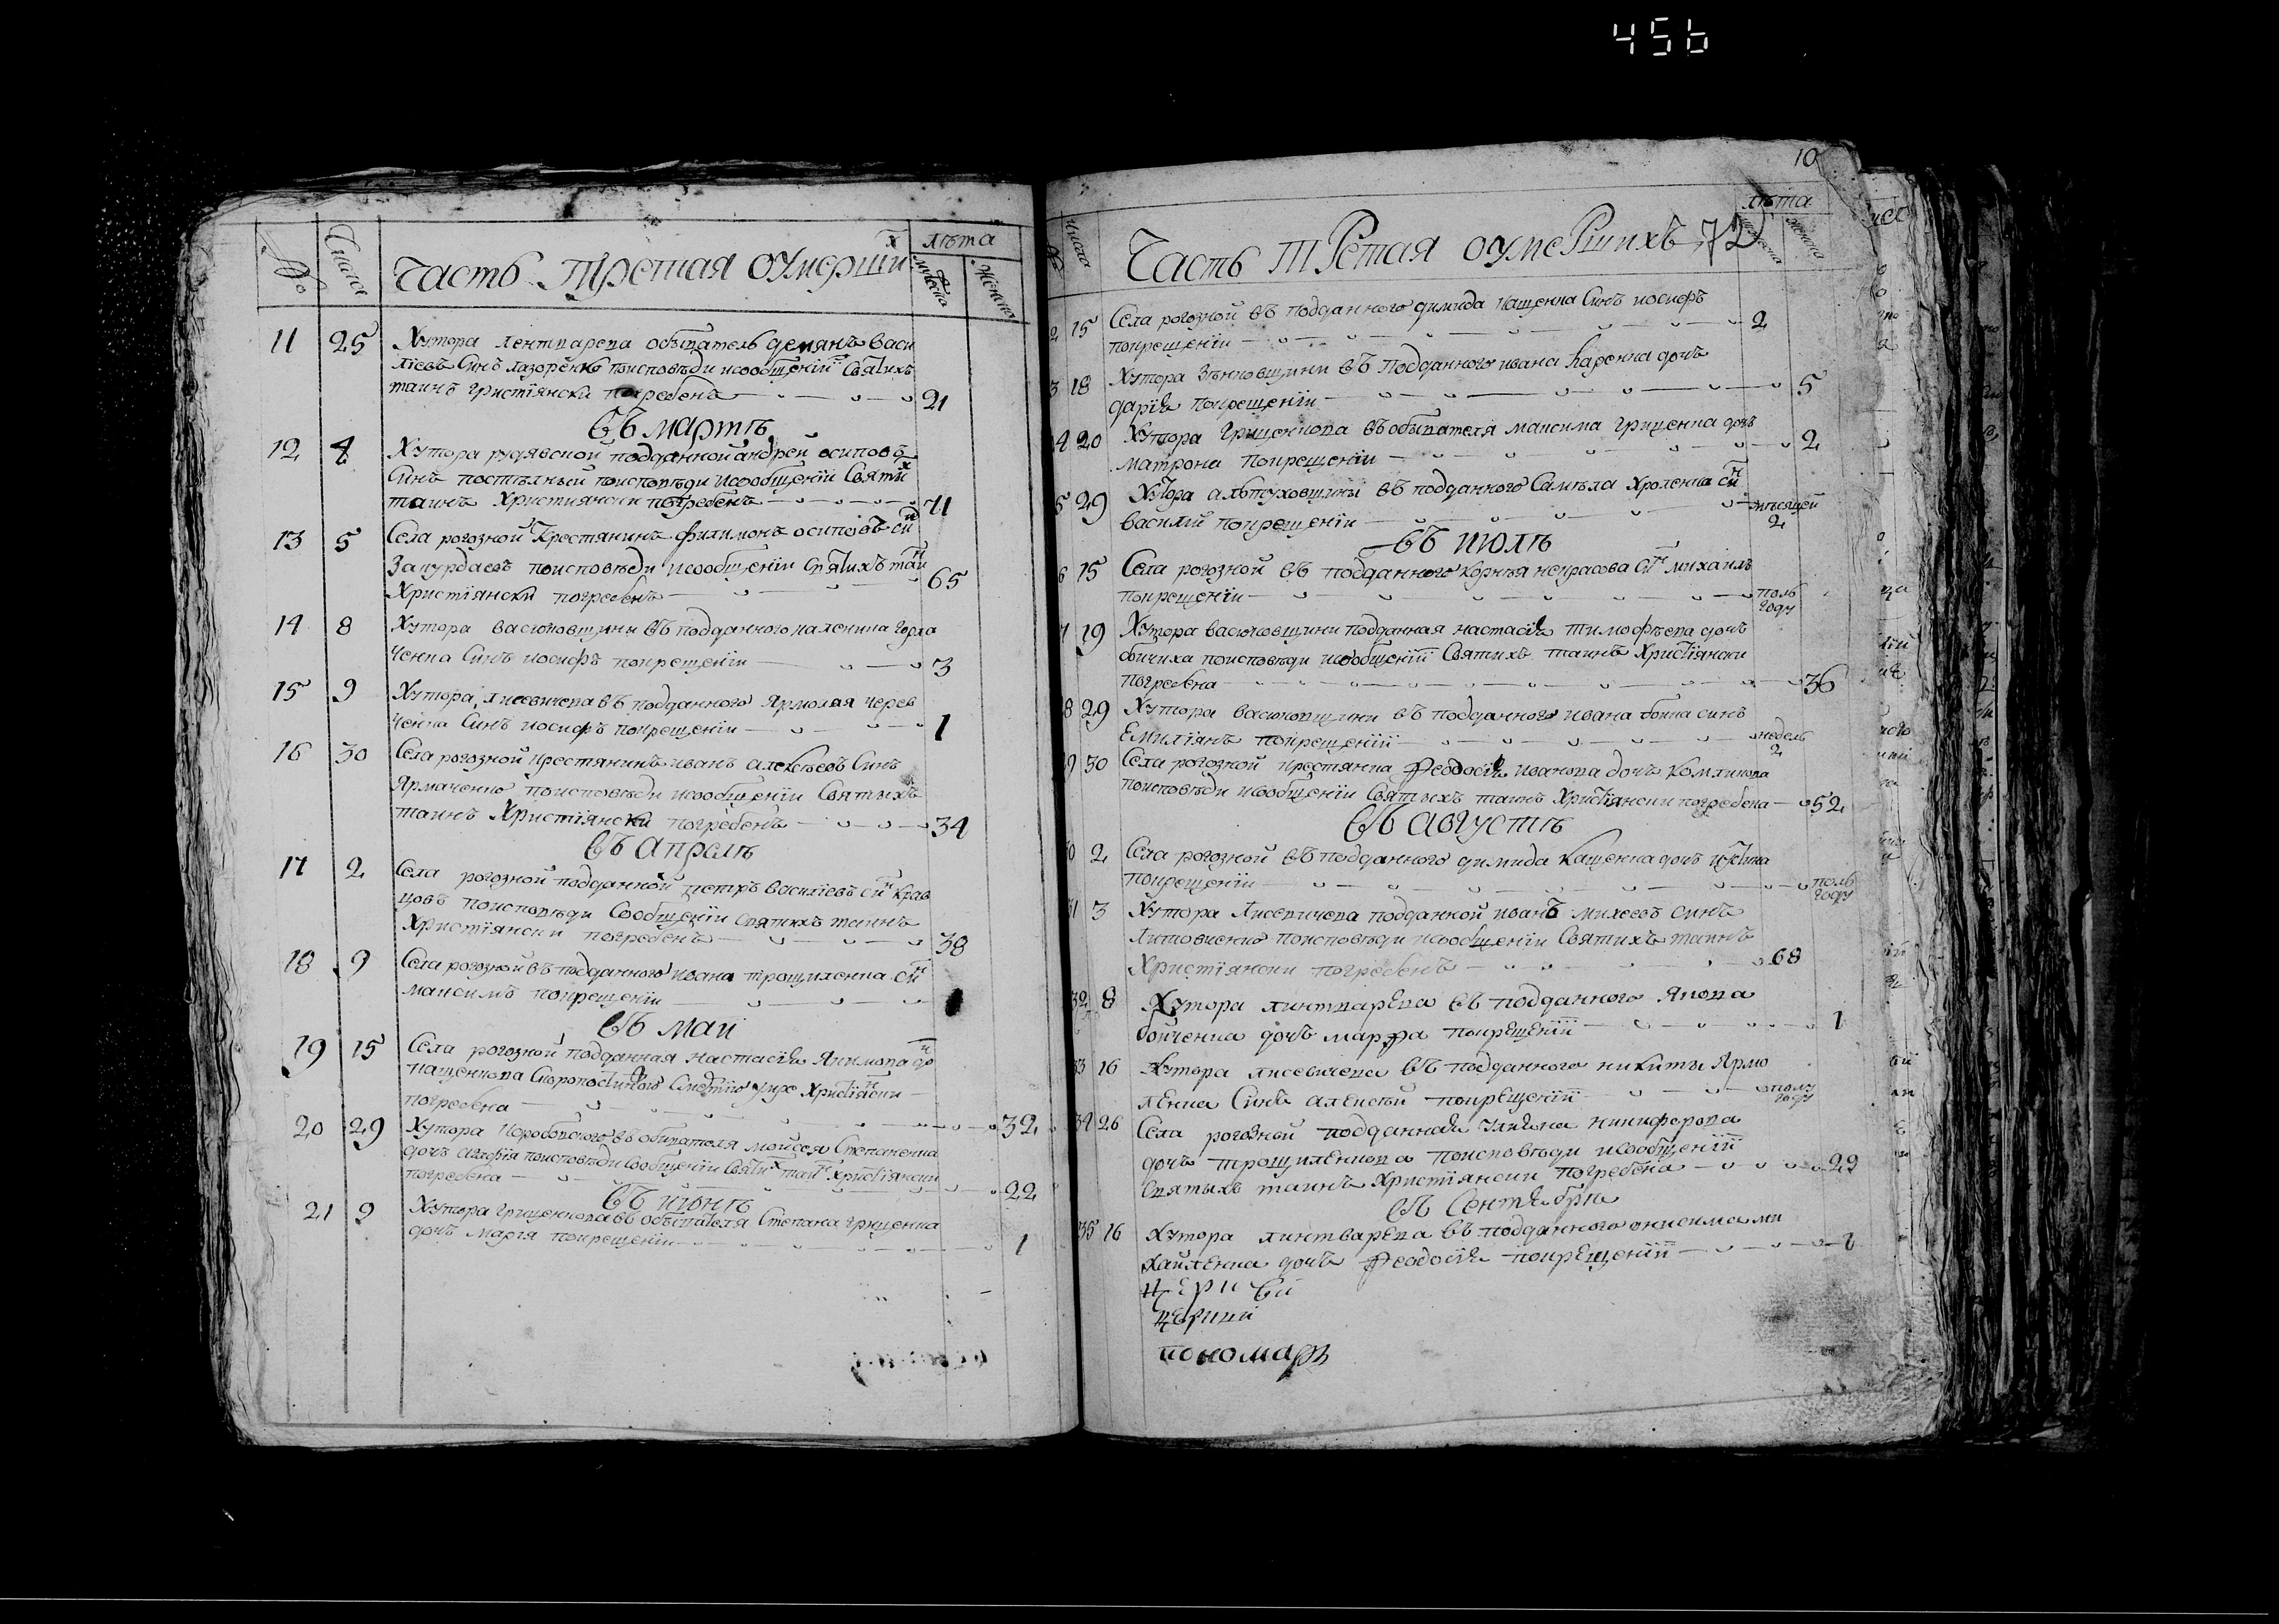 456
№ Числа Часть третая оумершихъ лѣта
мужеска женска
11 25 Хутора лентварева обыватель демянъ васи
лїевъ Синъ лазоренко поисповѣди исообщенїи Святихъ
таинъ христїянски погребенъ 21
въ мартѣ
12 4 Хутора подданной андрей осиповъ
Синъ поисповѣди исообщенїи Святих
таинъ Християнски погребенъ 71
13 5 Села рогозной Крестянинъ филимонъ осиповъ син
поисповѣди исообщенїи Святихъ таин
Христїянски погребенъ 65
14 8 Хутора васюковщины въ подданного
ченка Синъ иосифъ покрещенїи 3
15 9 Хутора лисевичева въ подданного Ярмолая черев
ченка Синъ иосифъ покрещенїи 1
16 30 Села рогозной крестянинъ иванъ алексѣевъ Синъ
Ярмаченко поисповѣди исообщенїи Святыхъ
таинъ Христїянски погребенъ 34
въ Апрелѣ
17 2 Села рогозной подданной петръ василїевъ син Крав
цовъ поисповѣди Сообщенїи святихъ таинъ
Христїянски погребенъ 38
18 9 Села рогозной въ подданного ивана трощиленка син
максимъ покрещенїи
въ маи
19 15 Села рогозной подданная настасїя Якимова до
кащенкова Скоропостижною Смертию умре Христїянски
погребена 32
20 29 Хутора коробовского въ обивателя мойсея Степаненка
дочъ агафїя поисповѣди Сообщенїи Святих таин христїянски
погребена 22
въ июнѣ
21 9 Хутора грищенкова въ обывателя Степана грищенка
дочъ марїя покрещенїи 1
10
№ Числа Часть третая оумершихъ 72 лѣта
2 15 Села рогозной въ подданного димида кащенка Синъ иосифъ
покрещенїи 2
3 18 Хутора Зѣнковщини въ Подданного ивана дочъ
дарїя покрещенїи 5
4 20 Хутора Грищенкова въ обывателя максима грищенка дочъ
матрона покрещенїи 2
5 29 Хутора алътуховщины въ подданного Самѣла Хроленка син
василий покрещенїи мѣсяцей
2
въ июлѣ
6 15 Села рогозной въ подданного корнѣя некрасова син михаилъ
покрещенїи полъ
году
7 19 Хутора васюковщини подданная настасїя тимофѣева дочъ
бойчиха поисповѣди исообщенїи Святихъ таинъ Христїянски
погребена 36
8 29 Хутора васюковщини въ подданного ивана бойка синъ
Емилїянъ покрещенїи неделъ
2
9 30 Села рогозной крестянка Феодосїя иванова дочъ
поисповѣди исообщенїи Святыхъ таинъ Христїянски погребена 52
въ августѣ
30 2 Села рогозной въ подданного димида кащенка дочъ
покрещенїи полъ
году
31 3 Хутора Лисевичева подданной иванъ михеевъ синъ
Литовченко поисповѣди исообщенїи Святихъ таинъ
Христїянски погребенъ 68
32 8 Хутора линтварева въ подданного Якова
бойченка дочъ марфа покрещенїи 1
33 16 Хутора лисевичева въ подданного никиты Ярмо
ленка Синъ алексѣй покрещенїи полу
году
34 26 Села рогозной подданная Улияна никифорова
дочъ трощиленкова поисповѣди исообщенїи
Святыхъ таинъ Христїянски погребена 29
въ Сентябрѣ
35 16 Хутора линтварева въ подданного онисима ми
хайленка дочъ Феодосїя покрещенїи 1
пономаръ